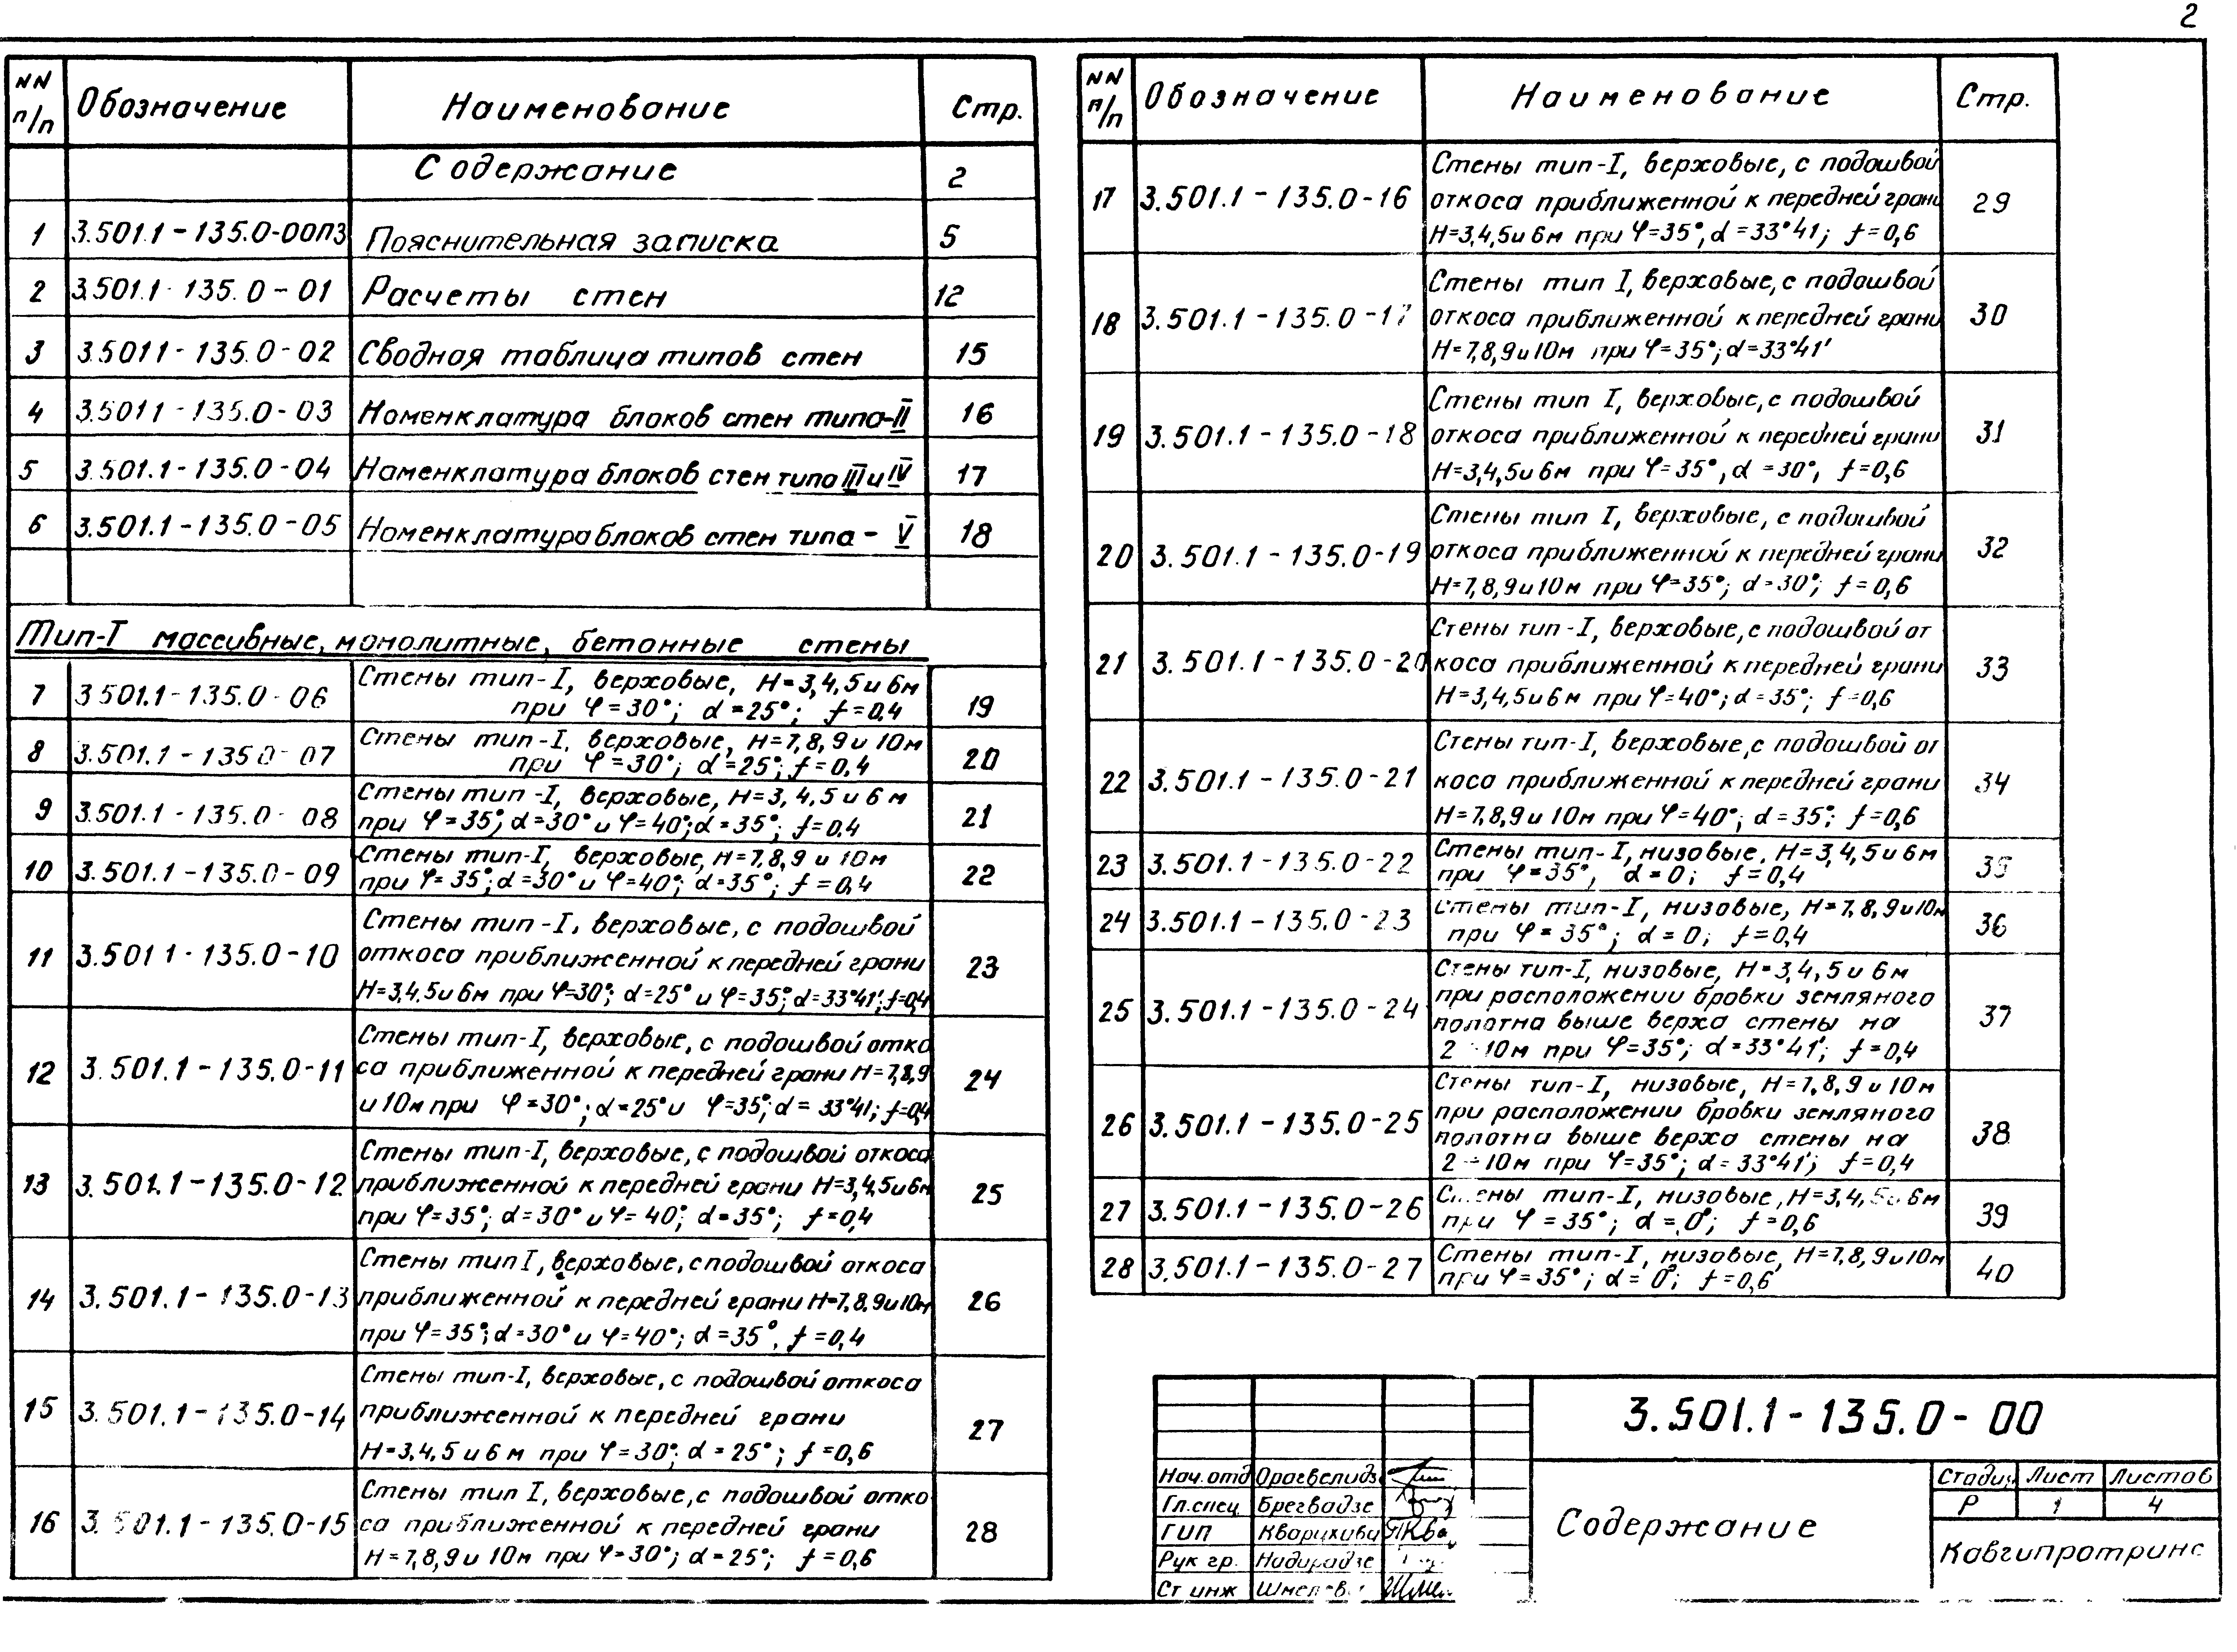 2
NN п/п Обозначение Наименование Стр.
Содержание 2
1 3.501.1-135.0-00ПЗ Пояснительная записка 5
2 3.501.1-135.0-01 Расчеты стен 12
3 3.501.1-135.0-02 Сводная таблица типов стен 15
4 3.501.1-135.0-03 Номенклатура блоков стен типа-II 16
5 3.501.1-135.0-04 Номенклатура блоков стен типа III и IV 17
6 3.501.1-135.0-05 Номенклатура блоков стен типа - V 18
Тип-I массивные, монолитные, бетонные стены
7 3.501.1-135.0-06 Стены тип-I, верховые, H=3,4,5 и 6м
при φ=30°; α=25°; f=0,4 19
8 3.501.1-135.0-07 Стены тип-I, верховые, H=7,8,9 и 10м
при φ=30°; α=25°; f=0,4 20
9 3.501.1-135.0-08 Стены тип-I, верховые, H=3,4,5 и 6м
при φ=35°; α=30° и φ=40°; α=35°; f=0,4 21
10 3.501.1-135.0-09 Стены тип-I, верховые, H=7,8,9 и 10м
при φ=35°; α=30° и φ=40°; α=35°; f=0,4 22
11 3.501.1-135.0-10 Стены тип-I, верховые, с подошвой
откоса приближенной к передней грани 23
H=3,4,5 и 6м при φ=30°; α=25° и φ=35°; α=33°41'; f=0,4
12 3.501.1-135.0-11 Стены тип-I, верховые, с подошвой отко
са приближенной к передней грани H=7,8,9 24
и 10м при φ=30°; α=25° и φ=35°; α=33°41; f=0,4
13 3.501.1-135.0-12 Стены тип-I, верховые, с подошвой откоса
приближенной к передней грани H=3,4,5 и 6м 25
при φ=35°; α=30° и φ=40°; α=35°; f=0,4
14 3.501.1-135.0-13 Стены тип I, верховые, с подошвой откоса
приближенной к передней грани H=7,8,9 и 10м 26
при φ=35°; α=30° и φ=40°; α=35°, f=0,4
15 3.501.1-135.0-14 Стены тип-I, верховые, с подошвой откоса
приближенной к передней грани 27
H=3,4,5 и 6м при φ=30°; α=25°; f=0,6
16 3.501.1-135.0-15 Стены тип I, верховые, с подошвой отко
са приближенной к передней грани 28
H=7,8,9 и 10м при φ=30°; α=25°; f=0,6
NN п/п Обозначение Наименование Стр.
17 3.501.1-135.0-16 Стены тип-I, верховые, с подошвой
откоса приближенной к передней грани 29
H=3,4,5 и 6м при φ=35°, α=33°41; f=0,6
18 3.501.1-135.0-17 Стены тип I, верховые, с подошвой
откоса приближенной к передней грани 30
H=7,8,9 и 10м при φ=35°; α=33°41'
19 3.501.1-135.0-18 Стены тип I, верховые, с подошвой
откоса приближенной к передней грани 31
H=3,4,5 и 6м при φ=35°, α=30°, f=0,6
20 3.501.1-135.0-19 Стены тип I, верховые, с подошвой
откоса приближенной к передней грани 32
H=7,8,9 и 10м при φ=35°; α=30°; f=0,6
21 3.501.1-135.0-20 Стены тип-I, верховые, с подошвой от
коса приближенной к передней грани 33
H=3,4,5 и 6м при φ=40°; α=35°; f=0,6
22 3.501.1-135.0-21 Стены тип-I, верховые, с подошвой от
коса приближенной к передней грани 34
H=7,8,9 и 10м при φ=40°; α=35°; f=0,6
23 3.501.1-135.0-22 Стены тип-I, низовые, H=3,4,5 и 6м
при φ=35°, α=0; f=0,4 35
24 3.501.1-135.0-23 Стены тип-I, низовые, H=7,8,9 и 10м
при φ=35°; α=0; f=0,4 36
25 3.501.1-135.0-24 Стены тип-I, низовые, H=3,4,5 и 6м
при расположении бровки земляного
полотна выше верха стены на 37
2÷10м при φ=35°; α=33°41'; f=0,4
26 3.501.1-135.0-25 Стены тип-I, низовые, H=7,8,9 и 10м
при расположении бровки земляного
полотна выше верха стены на 38
2÷10м при φ=35°; α=33°41'; f=0,4
27 3.501.1-135.0-26 Стены тип-I, низовые, H=3,4,5 и 6м
при φ=35°; α=0°; f=0,6 39
28 3.501.1-135.0-27 Стены тип-I, низовые, H=7,8,9 и 10м
при φ=35°; α=0°; f=0,6 40
3.501.1-135.0-00
Нач.отд
Гл.спец Брегвадзе
ГИП
Рук гр. Надирадзе
Ст инж
Содержание
Стадия Лист Листов
Р 1 4
Кавгипротранс